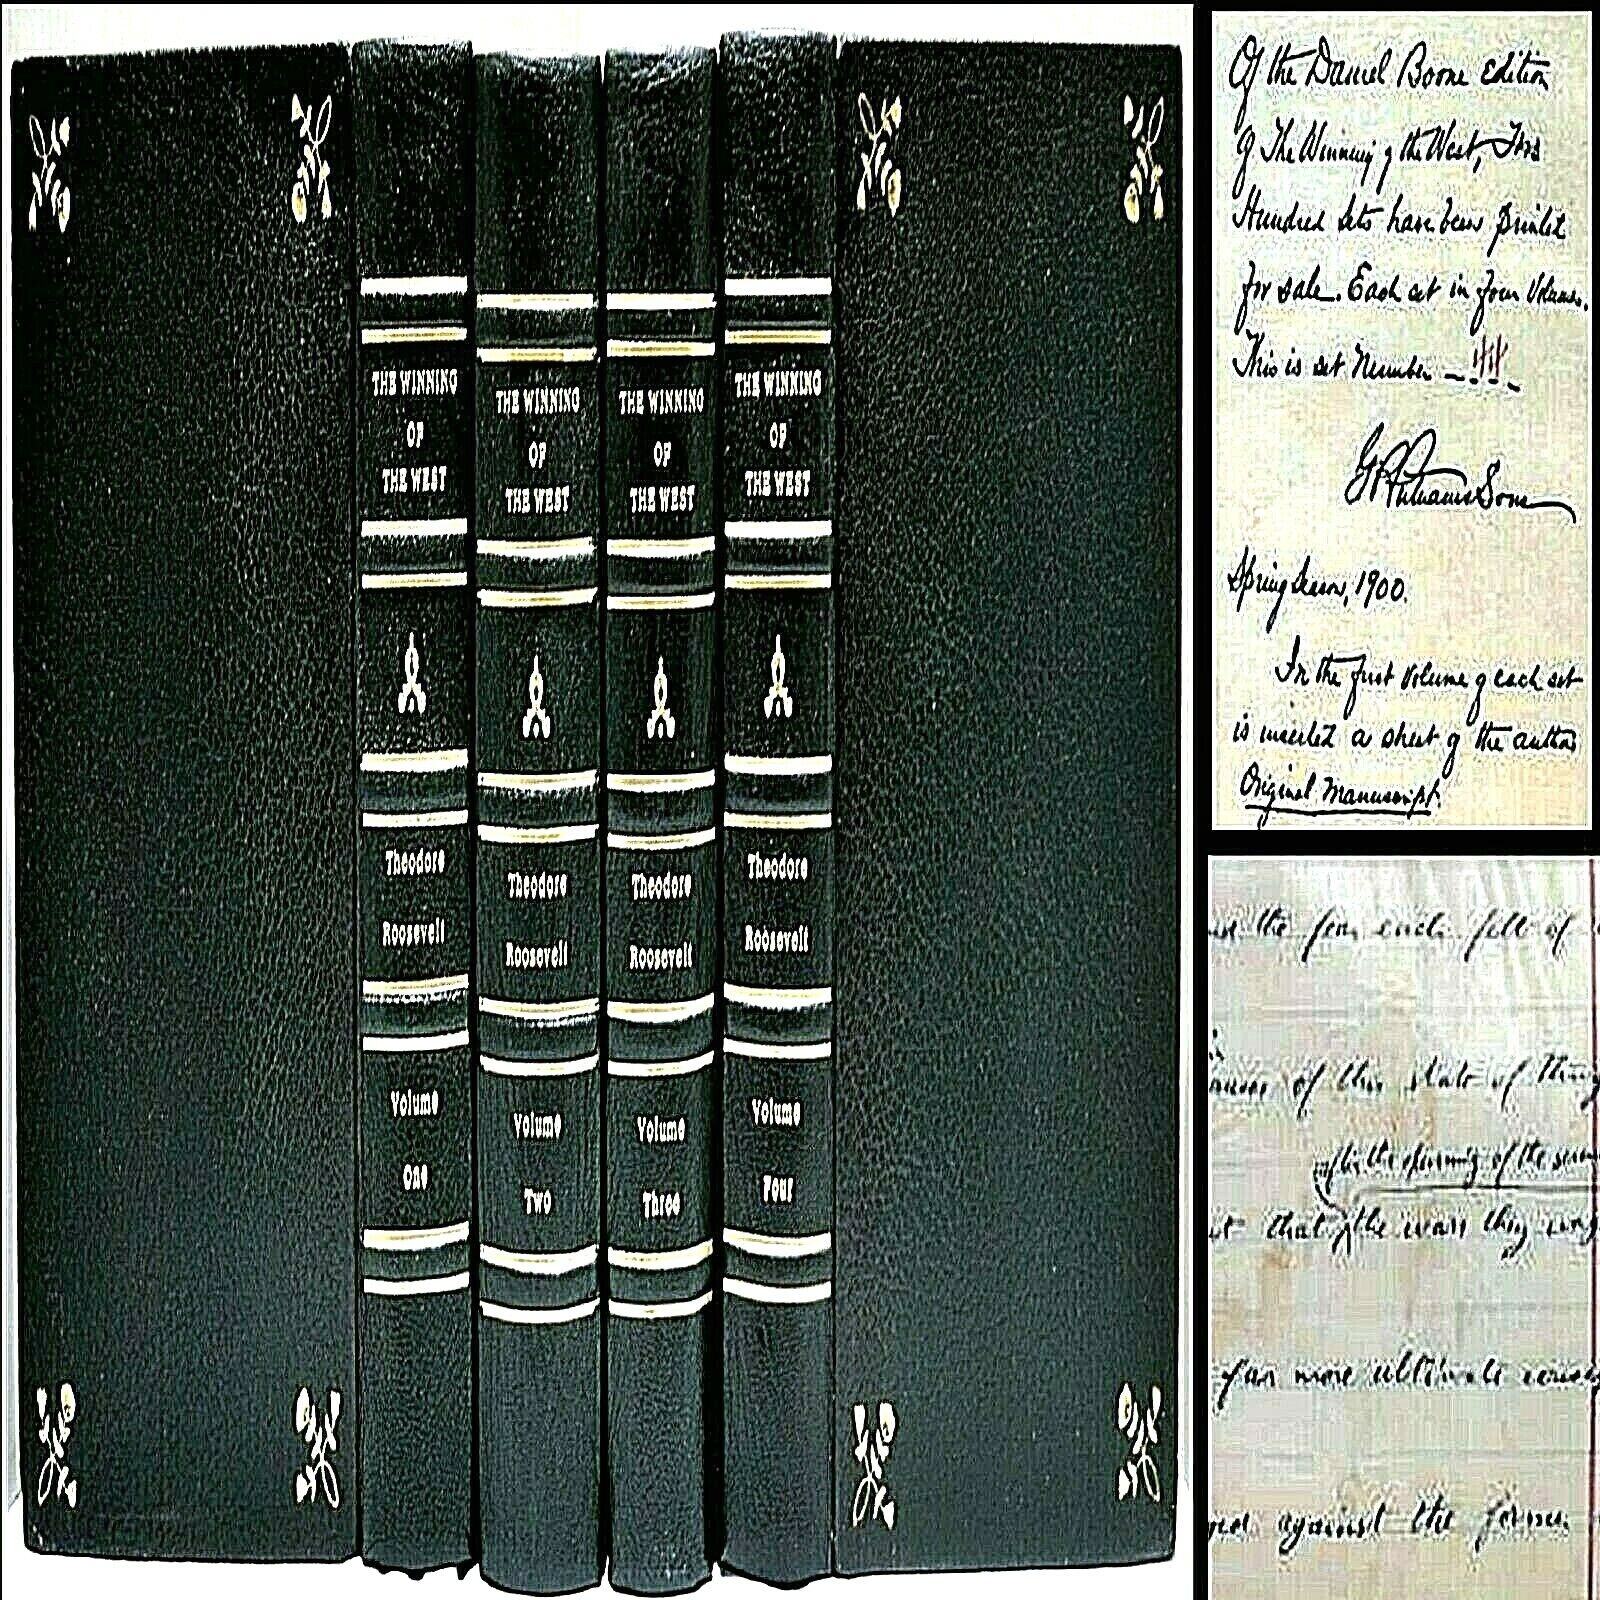 THE WINNING
OF
THE WEST
Theodore
Roosevelt
Volume
One
THE WINNING
OF
THE WEST
Theodore
Roosevelt
Volume
Two
THE WINNING
OF
THE WEST
Theodore
Roosevelt
Volume
Three
THE WINNING
OF
THE WEST
Theodore
Roosevelt
Volume
Four
Of the Daniel Boone Edition
of The Winning of the West, Two
Hundred Sets have been printed
for sale. Each set in four Volumes.
This is set Number
G P Putnams Sons
Spring Season, 1900.
In the first Volume of each set
is inserted a sheet of the authors
Original Manuscript.
the fell of
of this state of thing
the opening of the
that the wars they
far more ultimate
against the former